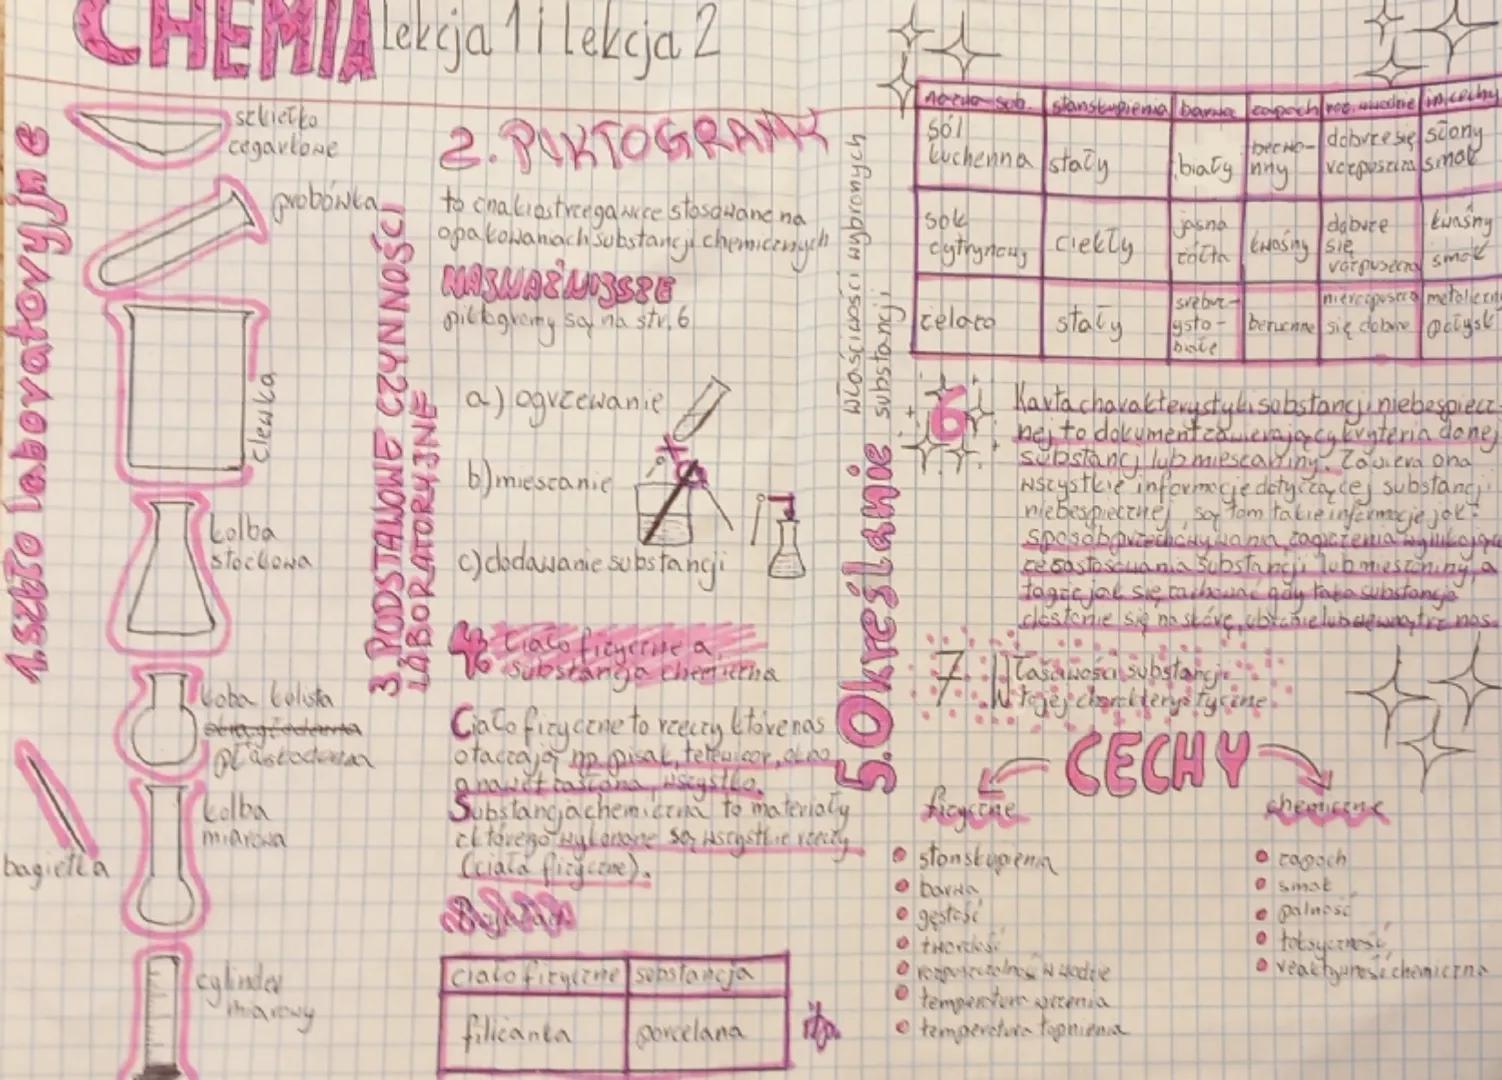 CHEMIA lekcja 1 i lekcja 2
1. szkło laboratoryjne
szkiełko
zegarkowe
probówka
zlewka
kolba
stożkowa
koba kolista
płaskodenna
kolba
miarowa
bagietka
cylinder
miarowy
2. PIKTOGRAMY
to znaki ostrzegawcze stosowane na
opakowaniach substancji chemicznych
NAJWAŻNIEJSZE
piktogramy są na str. 6
3. PODSTAWOWE CZYNNOŚCI
LABORATORYJNE
a) ogrzewanie
b) mieszanie
c) dodawanie substancji
4. Ciało fizyczne a
substancja chemiczna
Ciało fizyczne to rzeczy które nas
otaczają np. pisak, telewizor, okno
a nawet zasłona, wszystko.
Substancja chemiczna to materiały
z którego wykonane są wszystkie rzeczy
(ciała fizyczne).
ciało fizyczne substancja
filiżanka porcelana
itp.
5. Określanie
właściwości wybranych
substancji
nazwa sub. stan skupienia barwa zapach roz. w wodzie in. cechy
sól
kuchenna stały biały bezwo-
nny dobrze się
rozpuszcza słony
smak
sok
cytrynowy ciekły jasno
żółta kwaśny dobrze
się
rozpuszcza kwaśny
smak
żelazo stały srebrz-
ysto-
białe bezwonne nierozpuszcza
się dobrze metaliczny
połysk
6 Karta charakterystyki substancji niebezpiecz-
nej to dokument zawierający kryteria danej
substancj lub mieszaniny. Zawiera ona
wszystkie informacje dotyczącej substancji
niebezpiecznej, są tam takie informacje jak:
sposób przechowywania, zagrożenia wynikające
ze zastosowania substancji lub mieszaniny, a
także jak się zachować gdy taka substancja
dostanie się na skórę, ubranie lub wewnątrz nas.
7 Właściwości substancji
w tejej charakterystyczne
CECHY
fizyczne
stan skupienia
barwa
gęstość
twardość
rozpuszczalność w wodzie
temperatura wrzenia
temperatura topnienia
chemiczne
zapach
smak
palność
toksyczność
reaktywność chemiczna